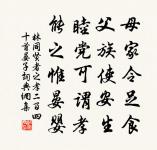 母家令足食
父族使安生
睦党可謂孝
能之惟晏嬰
林同賢者之孝二百四
十首晏子詞典網集